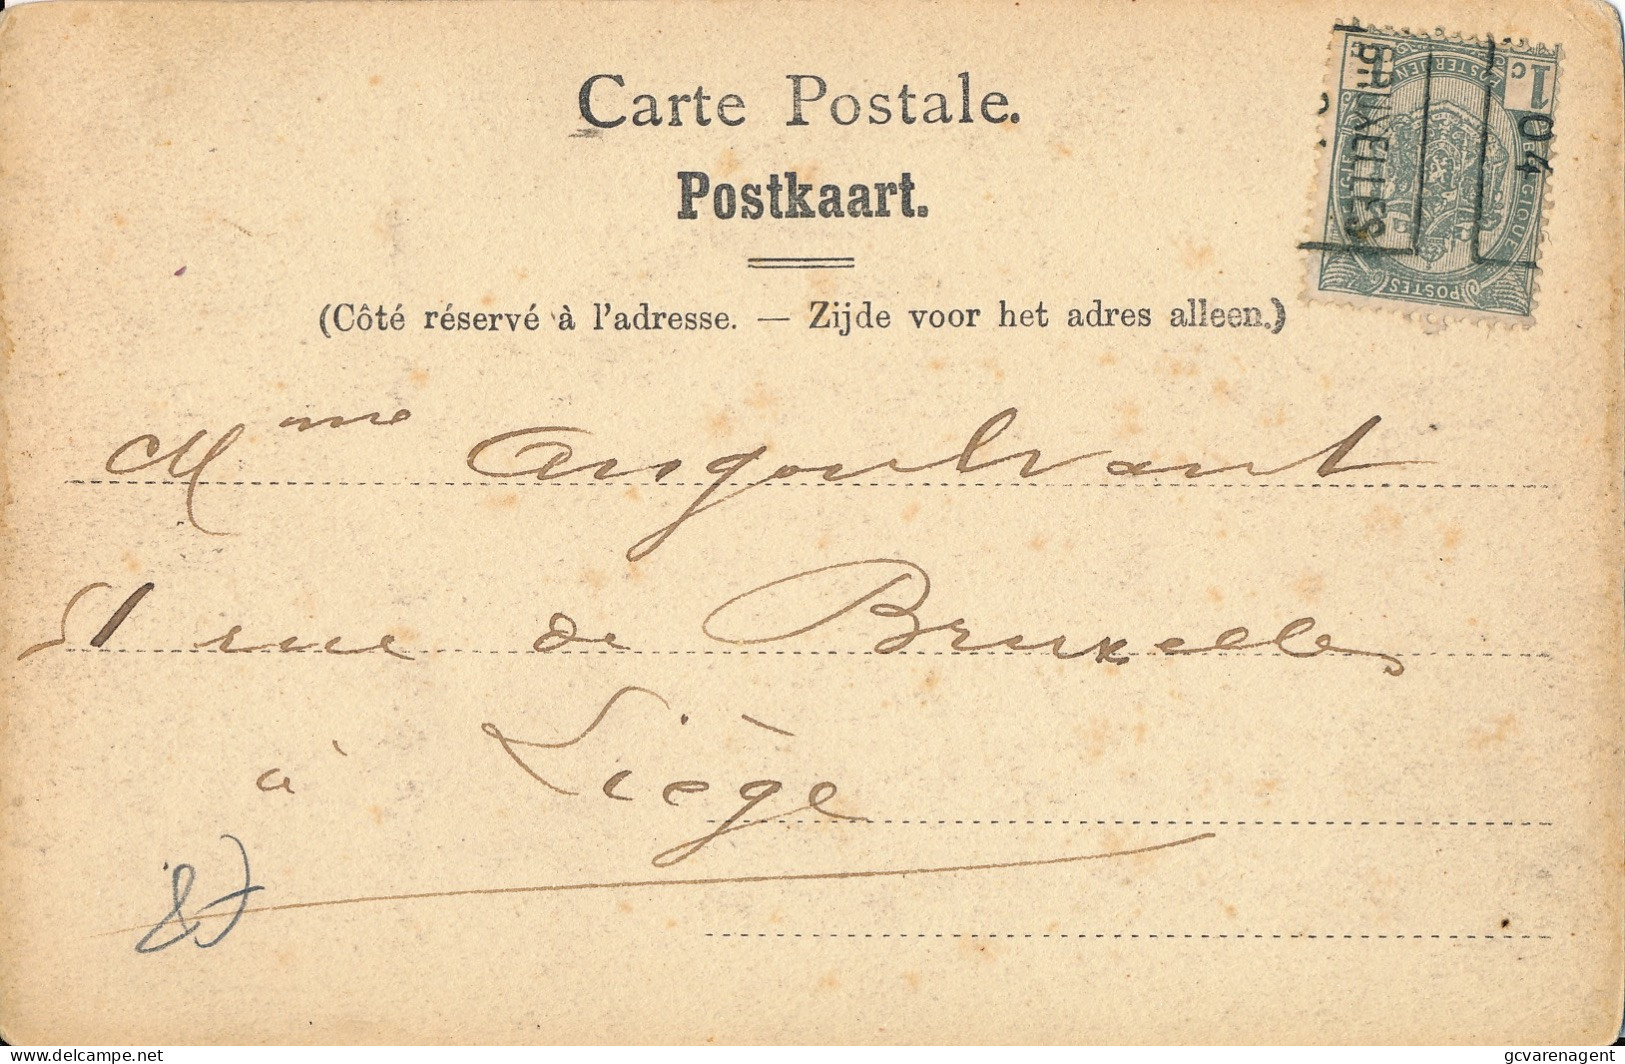 Carte Postale.
Postkaart.
(Côté réservé à l'adresse. — Zijde voor het adres alleen.)
1 c
BELGIQUE
POSTES
1 c
BRUXELLES
04
Mme Angoulvant
51 rue de Bruxelles
à Liège
87
https://www.delcampe.net
gcvarenagent